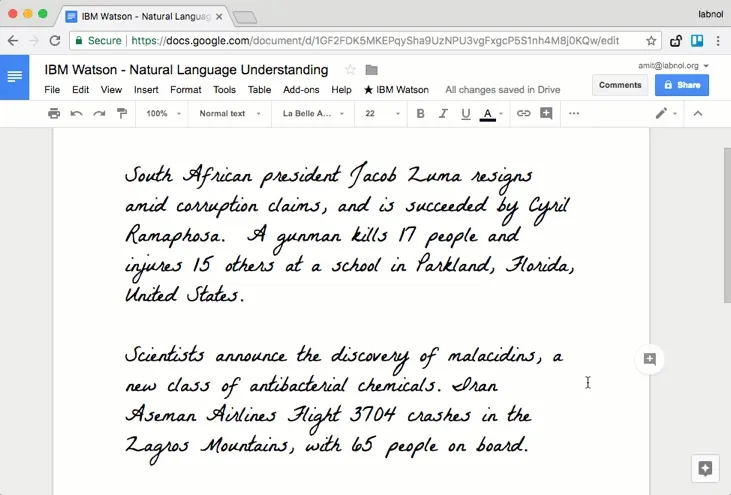 IBM Watson - Natural Languag
labnol
Secure
https://docs.google.com/document/d/1GF2FDK5MKEPqySha9UzNPU3vgFxgcP5S1nh4M8j0KQw/edit
IBM Watson - Natural Language Understanding
amit@labnol.org
File Edit View Insert Format Tools Table Add-ons Help ★ IBM Watson All changes saved in Drive
Comments
Share
100% Normal text La Belle A... 22 B I U A
South African president Jacob Zuma resigns
amid corruption claims, and is succeeded by Cyril
Ramaphosa. A gunman kills 17 people and
injures 15 others at a school in Parkland, Florida,
United States.
Scientists announce the discovery of malacidins, a
new class of antibacterial chemicals. Iran
Aseman Airlines Flight 3704 crashes in the
Zagros Mountains, with 65 people on board.